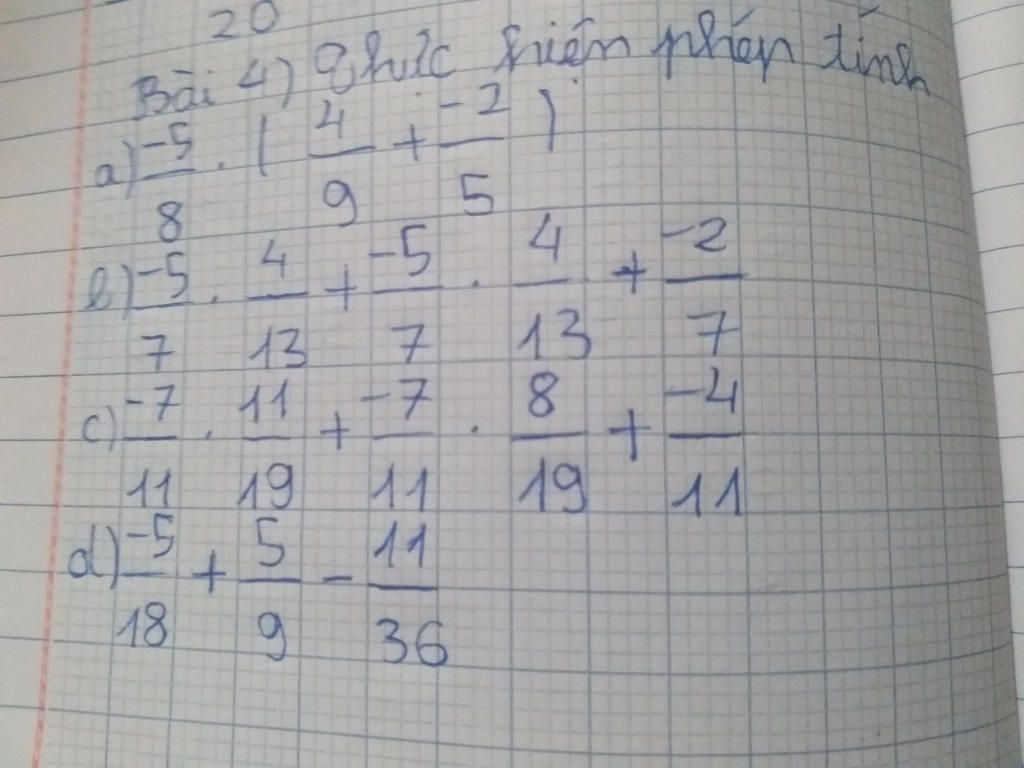 20
Bài 4) Thực hiện phép tính
a) -5/8 . ( 4/9 + -2/5 )
b) -5/7 . 4/13 + -5/7 . 4/13 + -2/7
c) -7/11 . 11/19 + -7/11 . 8/19 + -4/11
d) -5/18 + 5/9 - 11/36